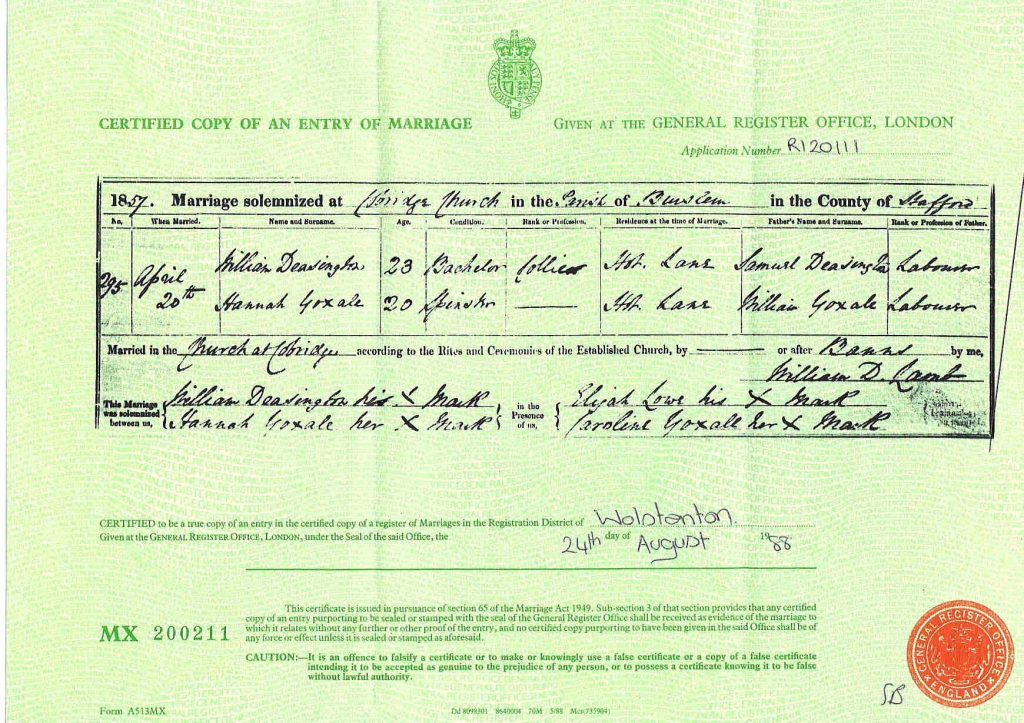 HONI SOIT QUI MAL Y PENSE
CERTIFIED COPY OF AN ENTRY OF MARRIAGE GIVEN AT THE GENERAL REGISTER OFFICE, LONDON
Application Number R120111
1857. Marriage solemnized at Cobridge Church in the Parish of Burslem in the County of Stafford
No. When Married. Name and Surname. Age. Condition. Rank or Profession. Residence at the time of Marriage. Father's Name and Surname. Rank or Profession of Father.
295 April 20th William Deasington 23 Bachelor Collier Hot. Lane Samuel Deasington Labourer
Hannah Goxale 20 Spinster Hot. Lane William Goxale Labourer
Married in the Church at Cobridge according to the Rites and Ceremonies of the Established Church, by or after Banns by me,
William D. Lamb
This Marriage was solemnized between us, William Deasington his X Mark in the Presence of us, Elijah Lowe his X Mark
Hannah Goxale her X Mark Caroline Goxall her X Mark
CERTIFIED to be a true copy of an entry in the certified copy of a register of Marriages in the Registration District of Wolstanton.
Given at the GENERAL REGISTER OFFICE, LONDON, under the Seal of the said Office, the 24th day of August 1988
This certificate is issued in pursuance of section 65 of the Marriage Act 1949. Sub-section 3 of that section provides that any certified
copy of an entry purporting to be sealed or stamped with the seal of the General Register Office shall be received as evidence of the marriage to
which it relates without any further or other proof of the entry, and no certified copy purporting to have been given in the said Office shall be of
any force or effect unless it is sealed or stamped as aforesaid.
MX 200211
CAUTION:—It is an offence to falsify a certificate or to make or knowingly use a false certificate or a copy of a false certificate
intending it to be accepted as genuine to the prejudice of any person, or to possess a certificate knowing it to be false
without lawful authority.
GENERAL REGISTER OFFICE ENGLAND
SB
Form A513MX Dd 8098301 8640004 70M 5/88 Mcr(735904)